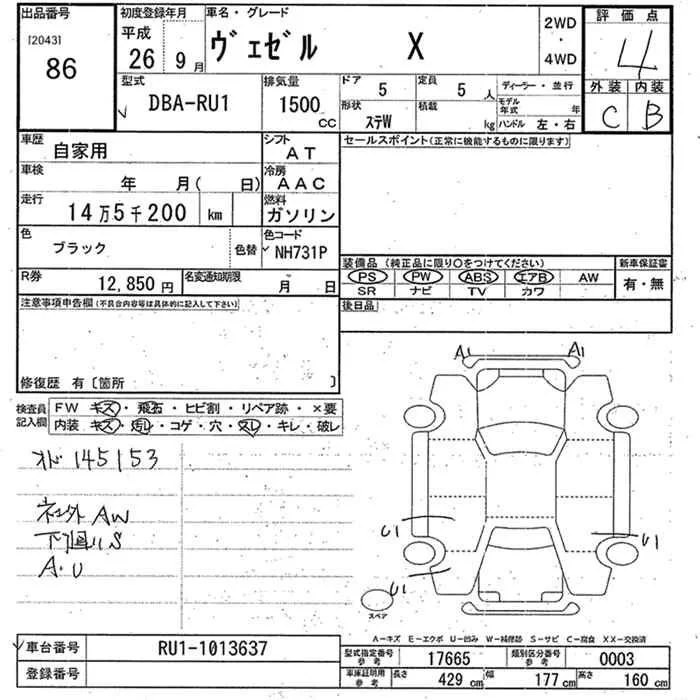 出品番号
[2043]
86
初度登録年月
平成
26 9月
車名・グレード
ヴェゼル X
2WD
・
4WD
評価点
4
外装 内装
C B
型式
DBA-RU1
排気量
1500
CC
ドア
5
定員
5人
ディーラー・並行
形状
ステW
積載
kg
モデル年式 年
ハンドル 左・右
車歴
自家用
シフト
AT
セールスポイント(正常に機能するものに限ります)
車検
年 月( 日)
冷房
AAC
走行
14万5千200 km
燃料
ガソリン
色
ブラック
色替
色コード
NH731P
装備品(純正品に限り○をつけてください)
PS PW ABS エアB AW
SR ナビ TV カワ
新車保証書
有・無
R券
12,850円
名変通知期限
月 日
後日品
注意事項申告欄(不具合内容等は具体的に記入して下さい)
修復歴 有〔箇所 〕
検査員記入欄
FW キズ・飛石・ヒビ割・リペア跡・×要
内装 キズ・汚れ・コゲ・穴・スレ・キレ・破レ
オド 145153
社外AW
下回りS
A・U
A1 A1
U1 U1
U1
スペア
A-キズ E-エクボ U-凹み W-補修跡 S-サビ C-腐食 XX-交換済
車台番号
RU1-1013637
登録番号
型式指定番号参考
17665
類別区分番号参考
0003
車庫証明用参考
長さ 429cm
幅 177cm
高さ 160cm